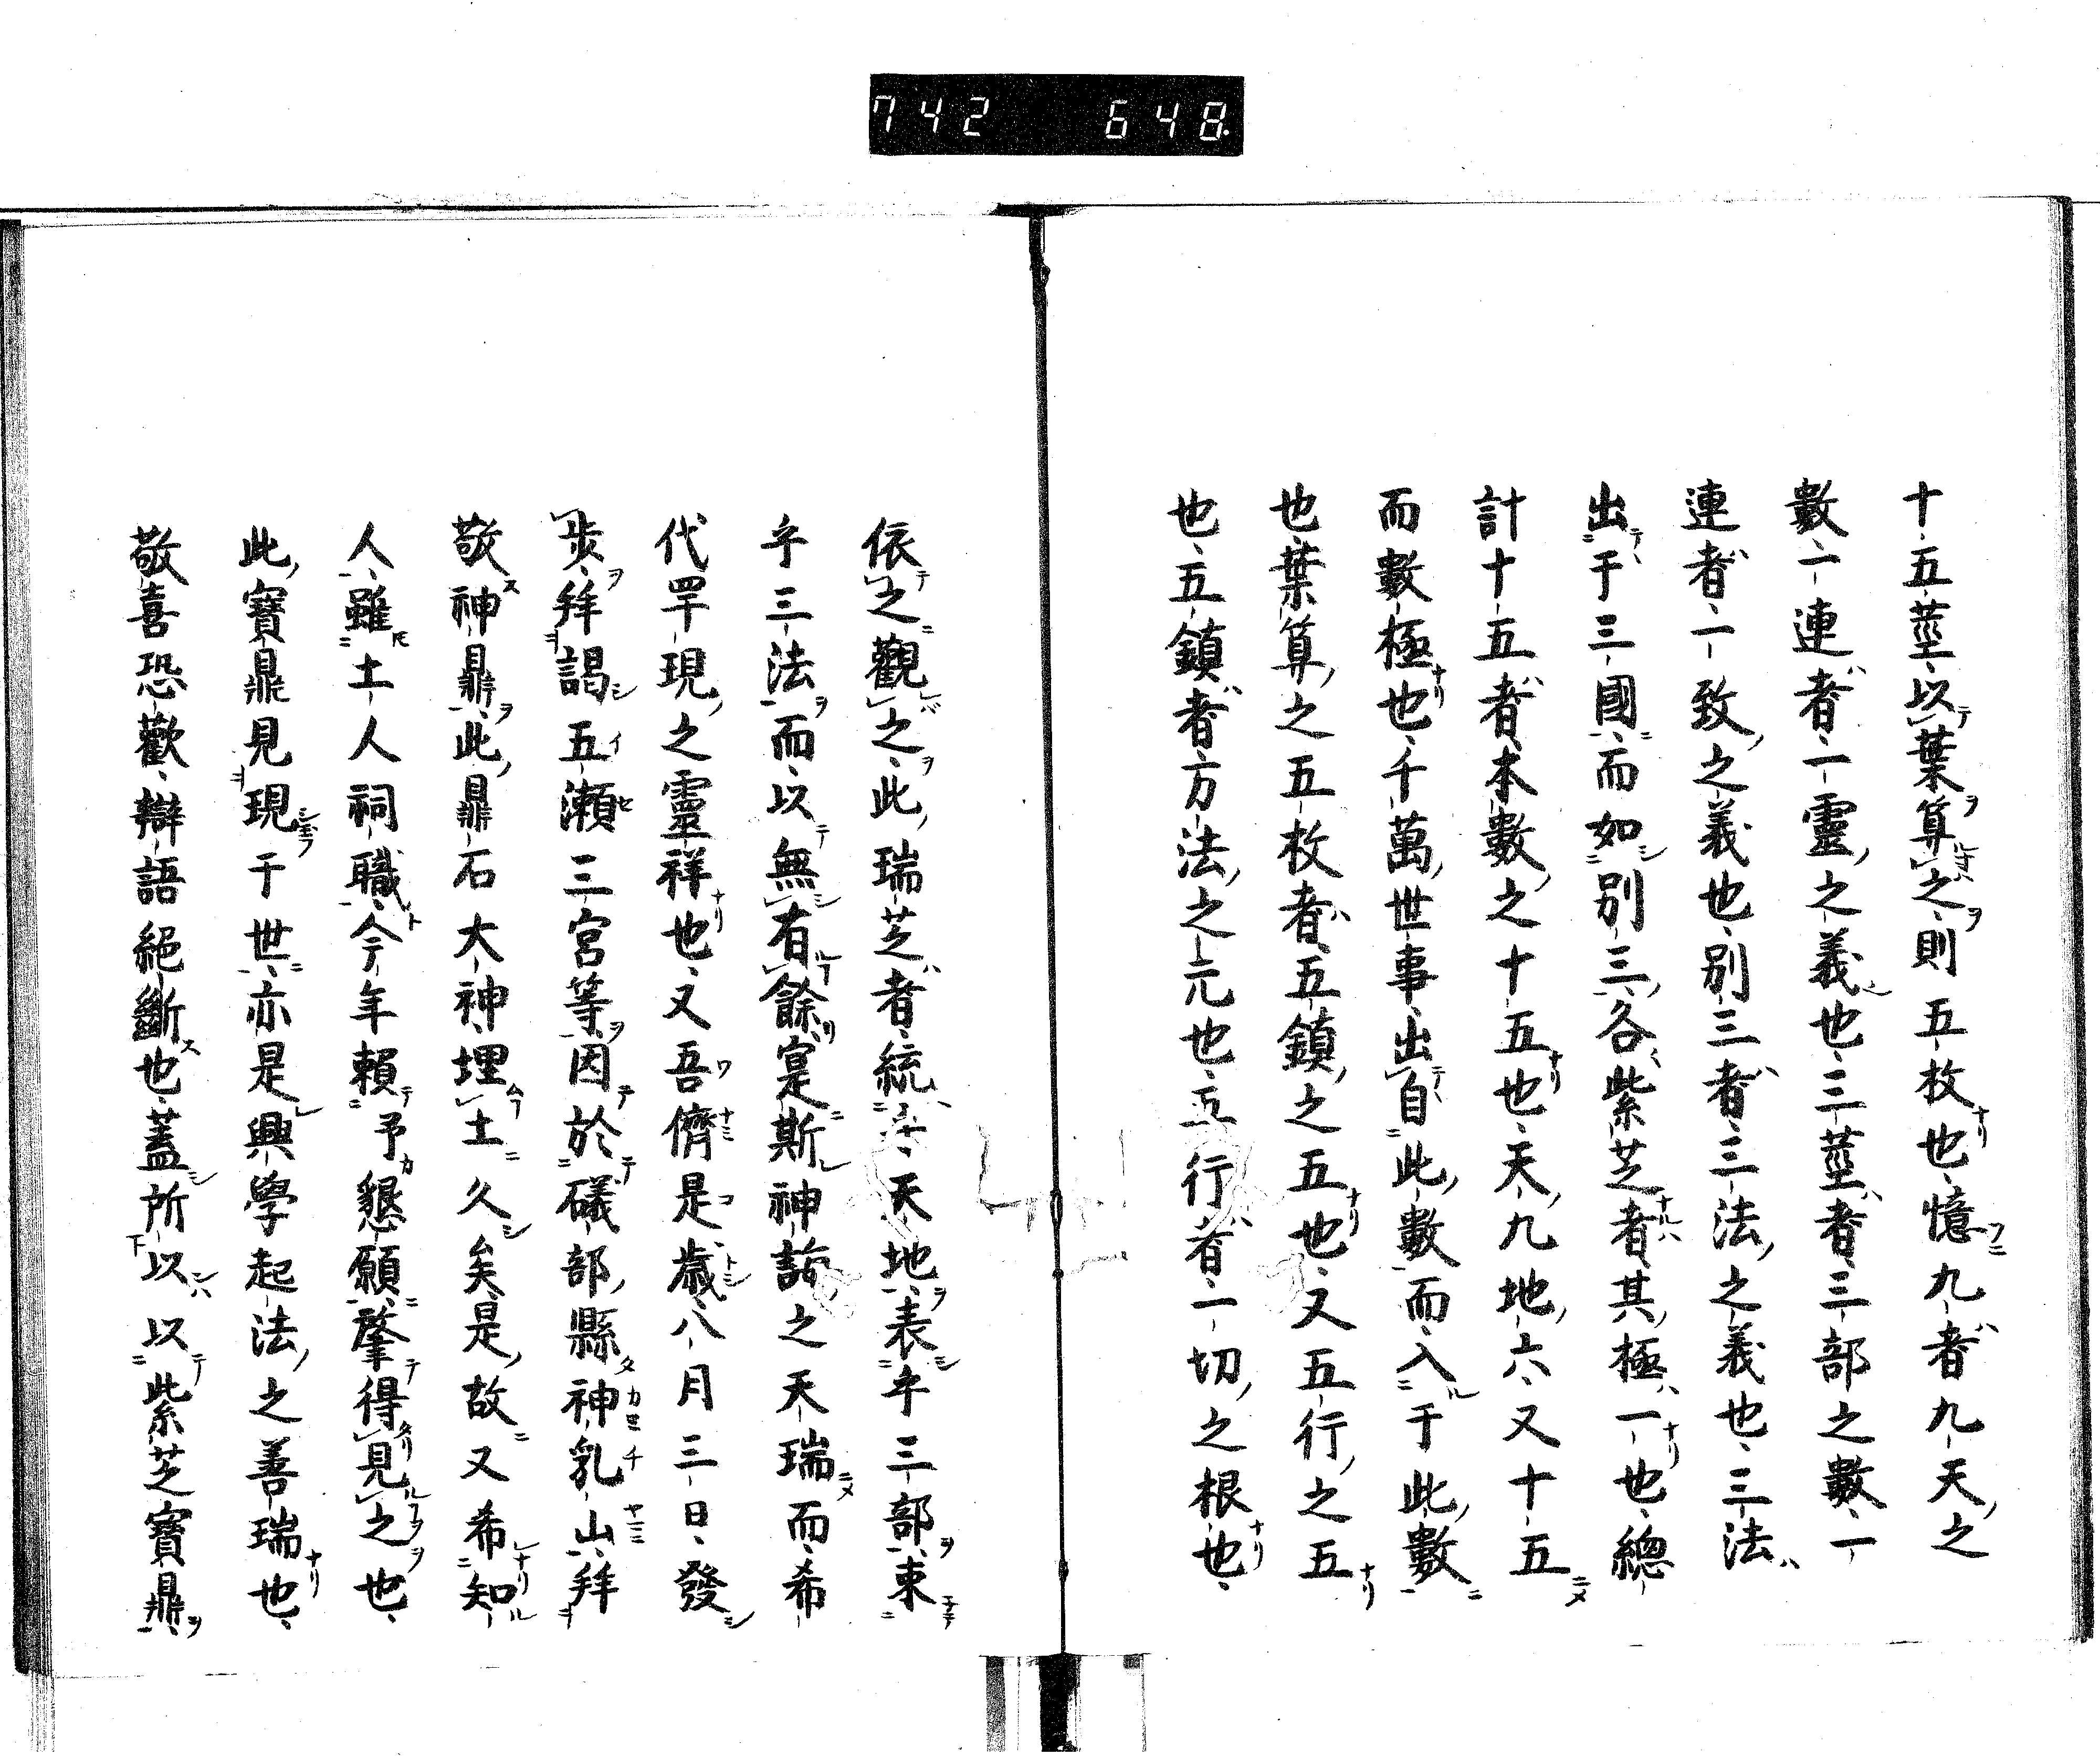 742 648
十五莖以葉算之則五枚也憶九者九天之
數一連者一靈之義也三莖者三部之數一
連者一致之義也別三者三法之義也三法
出于三國而如別三各紫芝者其極一也總
計十五者本數之十五也天九地六又十五
而數極也千萬世事出自此數而入于此數
也葉算之五枚者五鎮之五也又五行之五
也五鎮者方法之元也五行者一切之根也
依之觀之此瑞芝者統六天地表乎三部束
乎三法而以無有餘寔斯神諺之天瑞而希
代罕現之靈祥也又吾儕是歲八月三日發
步拜謁五瀨三宮等因於礒部縣神乳山拜
敬神鼎此鼎石大神埋土久矣是故又希知
人雖土人祠職今年賴予懇願肇得見之也
此寶鼎見現于世亦是興學起法之善瑞也
敬喜恐歡辯語絕斷也蓋所以以紫芝寶鼎